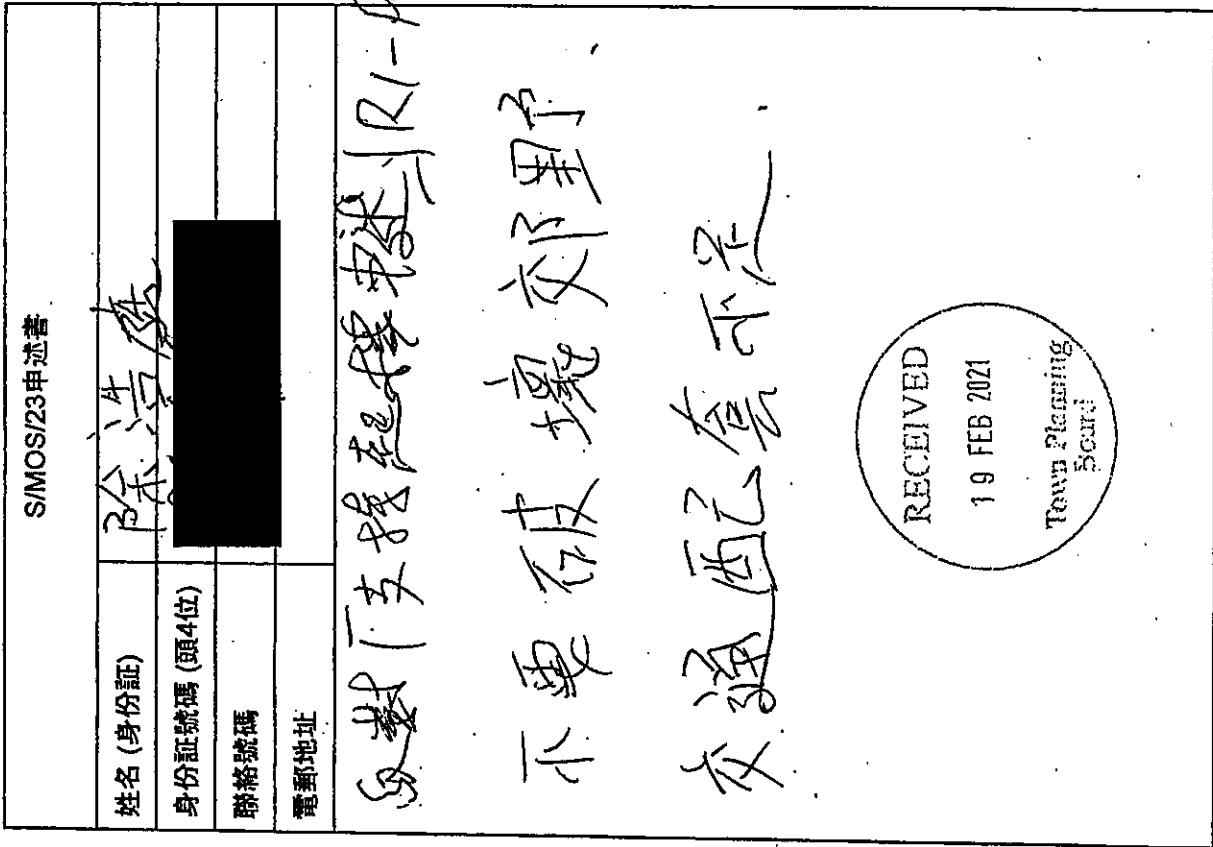 S/MOS/23申述書
姓名 (身份証)
身份証號碼 (頭4位)
聯絡號碼
電郵地址
反對「支援起樓
不要破壞郊野、
交通配套不足
RECEIVED
19 FEB 2021
Town Planning
Board